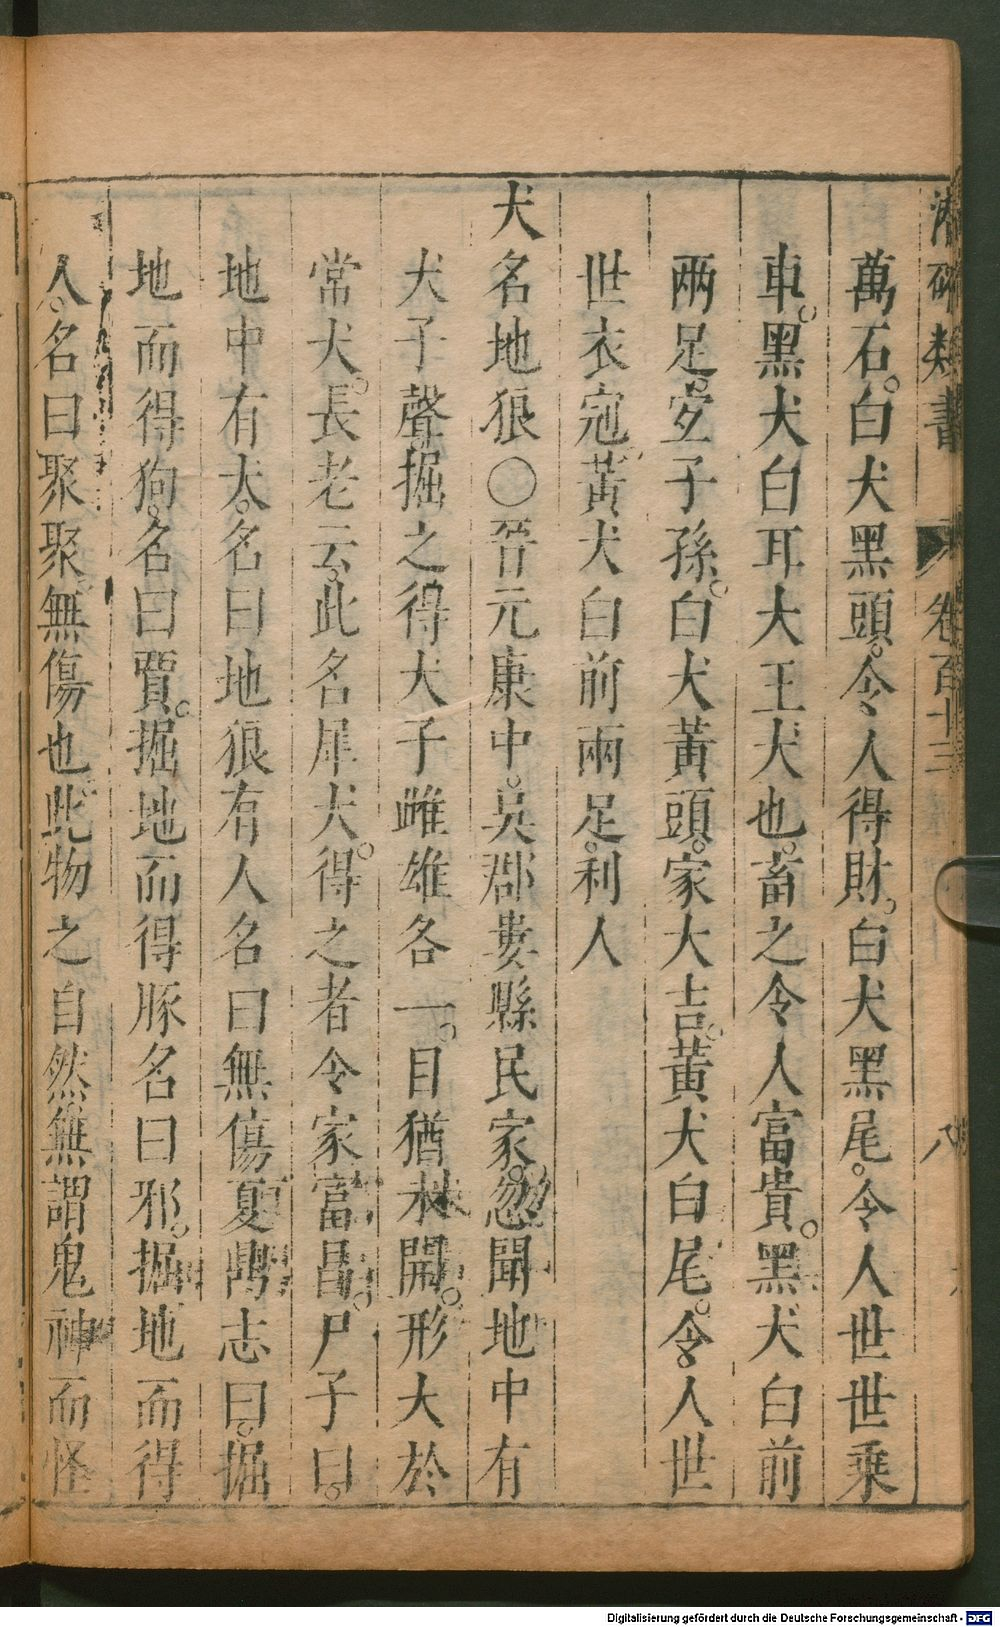 潛确類書 卷百十三 八
萬石。白犬黑頭。令人得財。白犬黑尾。令人世世乘
車。黑犬白耳大王犬也。畜之令人富貴。黑犬白前
兩足。宐子孫。白犬黃頭。家大吉。黃犬白尾。令人世
世衣冠。黃犬白前兩足。利人
犬名地狼○晉元康中。吳郡婁縣民家。忽聞地中有
犬子聲。掘之得犬子雌雄各一。目猶未開。形大於
常犬。長老云。此名犀犬。得之者令家富昌。尸子曰。
地中有犬。名曰地狼有人名曰無傷夏鼎志曰。掘
地而得狗。名曰賈。掘地而得豚名曰邪。掘地而得
人。名曰聚聚無傷也。此物之自然。無謂鬼神而怪
Digitalisierung gefördert durch die Deutsche Forschungsgemeinschaft - DFG